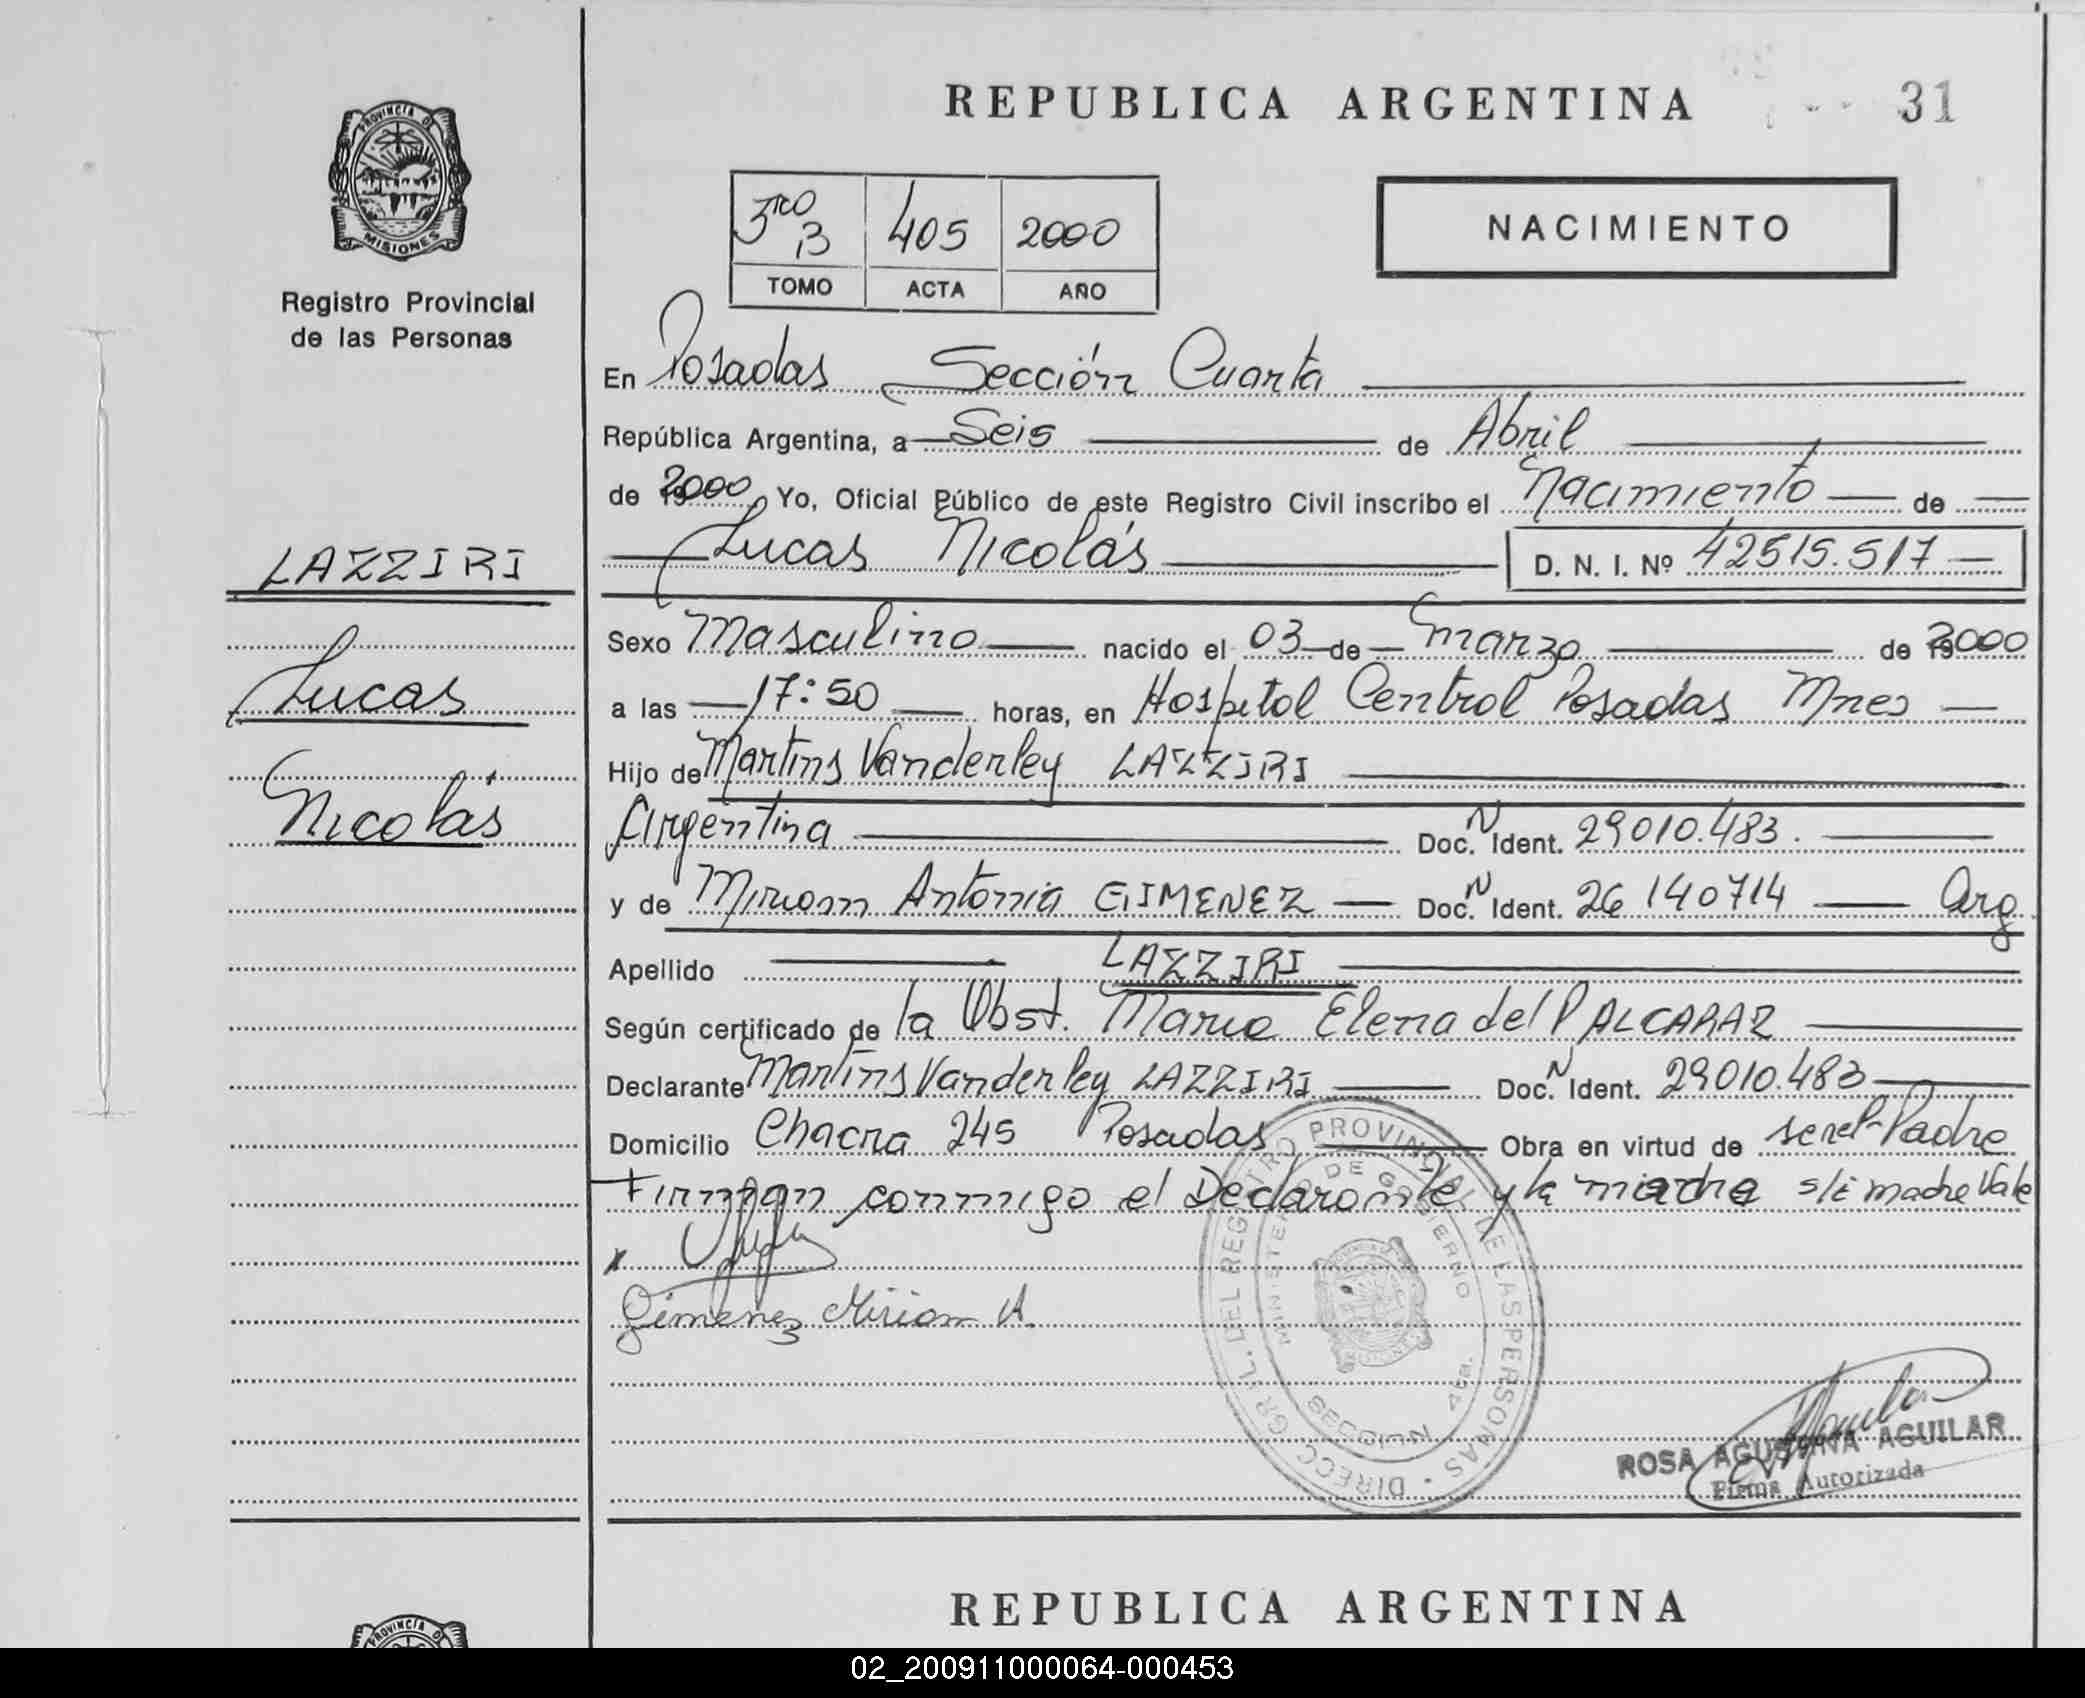 REPUBLICA ARGENTINA
31
PROVINCIA DE
MISIONES
Registro Provincial
de las Personas
3ro B 405 2000
TOMO ACTA AÑO
NACIMIENTO
En Posadas Sección Cuarta
República Argentina, a Seis de Abril
de 2000, Yo, Oficial Público de este Registro Civil inscribo el Nacimiento de
Lucas Nicolás D. N. I. Nº 42515.517
LAZZIRI
Lucas
Nicolás
Sexo Masculino nacido el 03 de marzo de 2000
a las 17:50 horas, en Hospital Central Posadas Mnes
Hijo de Martins Vanderley LAZZIRI
Argentina Doc. N Ident. 29010.483.
y de Miriam Antonia GIMENEZ Doc. N Ident. 26 140714 Arg
Apellido LAZZIRI
Según certificado de la Obst. Maria Elena del P ALCARAZ
Declarante Martins Vanderley LAZZIRI Doc. N Ident. 29010.483
Domicilio Chacra 245 Posadas Obra en virtud de ser el Padre
Firman conmigo el Declarante y la madre s/E madre Vale
Gimenez Miriam A.
DIRECC. GRAL. DEL REGISTRO PROVINCIAL DE LAS PERSONAS
MINISTERIO DE GOBIERNO
SECCION 4ta.
ROSA AGUSTINA AGUILAR
Firma Autorizada
REPUBLICA ARGENTINA
PROVINCIA DE
02_200911000064-000453